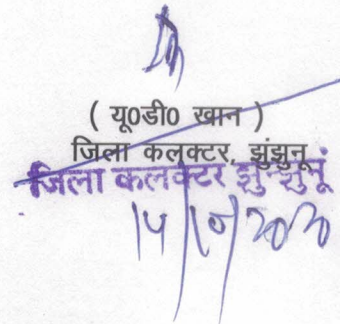 ( यू0डी0 खान )
जिला कलक्टर, झुंझुनू
जिला कलक्टर झुन्झुनूं
14/10/2020